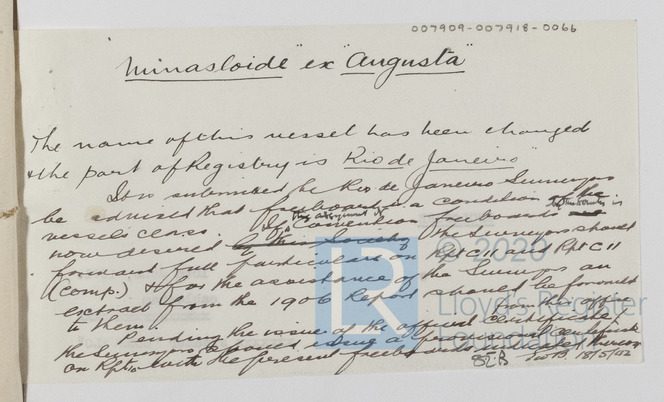 007909-007918-0066
"Minasloide" ex "Augusta"
The name of this vessel has been changed
& the port of Registry is Rio de Janeiro
It is submitted the Rio de Janeiro Surveyors
be advised that freeboard is a condition of the
vessel's class. If the assignment of Convention freeboards is
now desired by this Society the Surveyors should
forward full particulars on Rpt C 11 and Rpt C 11
(comp.) & for the assistance of the Surveyors an
extract from the 1906 Report should be forwarded
to them.
Pending the issue of the official Certificate
the Surveyors should issue a provisional certificate
on Rpt with the present freeboards indicated thereon
© 2020
Lloyd's Register
Foundation
LR